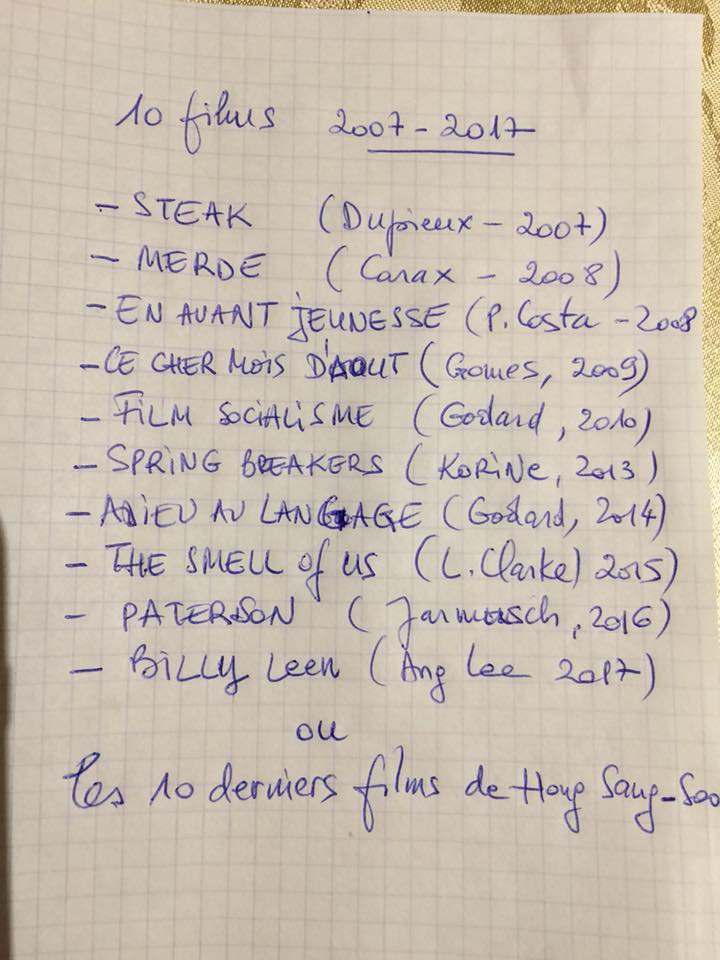 10 films 2007-2017
- STEAK (Dupieux - 2007)
- MERDE (Carax - 2008)
- EN AVANT JEUNESSE (P. Costa - 2008
- CE CHER MOIS D'AOUT (Gomes, 2009)
- FILM SOCIALISME (Godard, 2010)
- SPRING BREAKERS (KORINE, 2013)
- ADIEU AU LANGAGE (Godard, 2014)
- THE SMELL of US (L. Clarke) 2015)
- PATERSON (Jarmusch, 2016)
- BILLY Leen (Ang Lee 2017)
ou
les 10 derniers films de Hong Sang-Soo